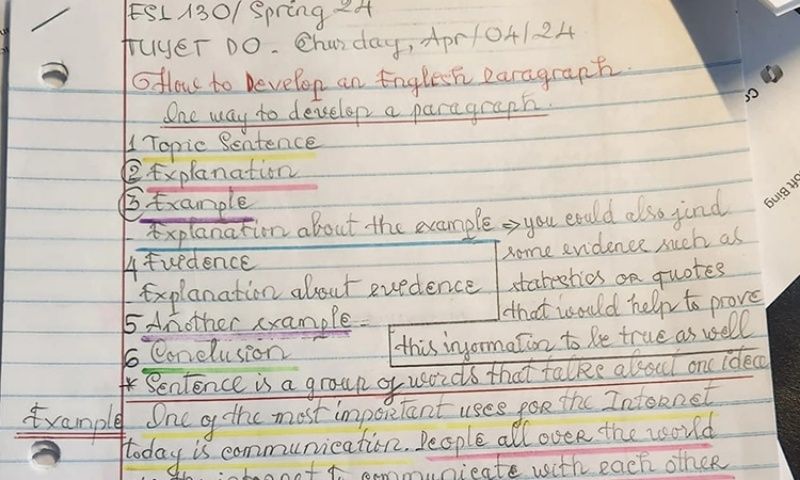 ESL 130/Spring 24
TUYET DO. Thurday, Apr/04/24
How to Develop an English Paragraph.
One way to develop a paragraph.
1 Topic Sentence
2 Explanation
3 Example
- Explanation about the example ⇒ you could also find
some evidence such as
4 Evidence
statistics or quotes
- Explanation about evedence
that would help to prove
5 Another example -
this information to be true as well
6 Conclusion
* Sentence is a group of words that talks about one idea
Example One of the most important uses for the Internet
today is communication. People all over the world
internet to communicate with each other
oft Bing